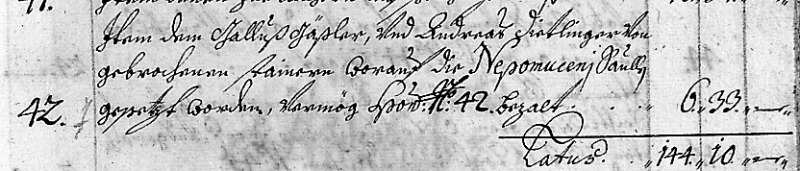 Item dem Galluß Gäßler, und Andreas Dietlinger von
gebrochenen stainern worauf die Nepomucenj Saulln
42. gesetzt worden, vermög No: 42. bezalt . . . 6. 33. –
Latus. . 144. 10. –